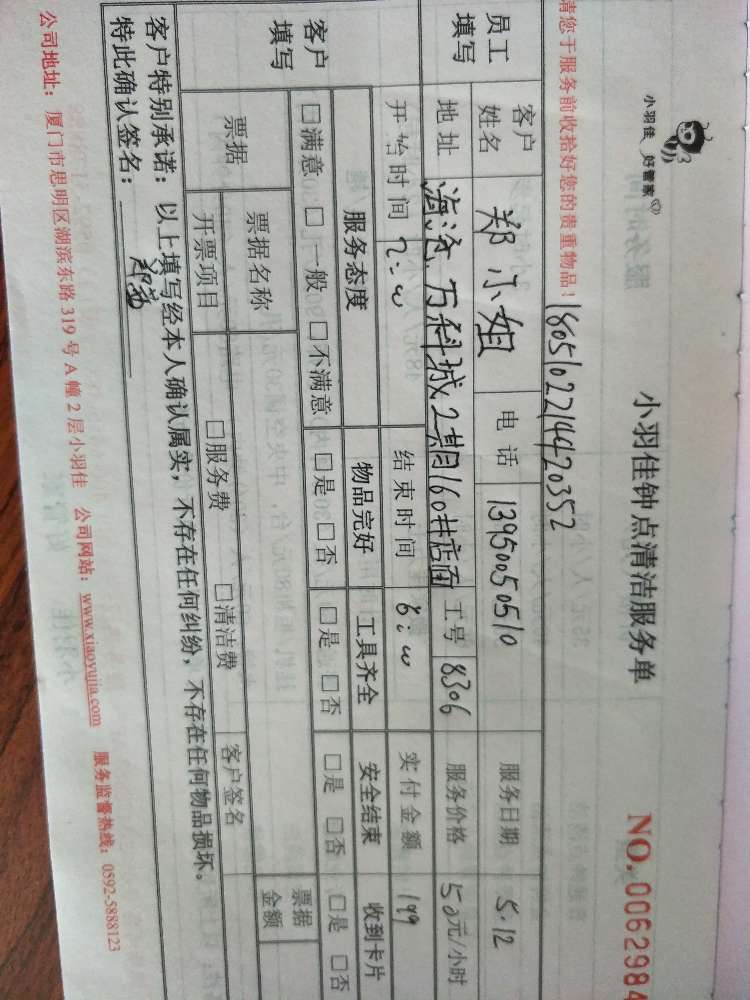 小羽佳 好管家
小羽佳钟点清洁服务单
NO. 0062984
请您于服务前收拾好您的贵重物品!
180510221442035​2
员工填写
客户姓名 郑小姐 电话 13950050510 服务日期 5.12
地址 海沧.万科城2期160#店面 工号 8306 服务价格 50元/小时
开始时间 2:00 结束时间 6:00 实付金额 199
客户填写
服务态度 物品完好 工具齐全 安全结束 收到卡片
□满意 □一般 □不满意 □是 □否 □是 □否 □是 □否 □是 □否
票据 票据名称 票据金额
开票项目 □服务费 □清洁费 客户签名
客户特别承诺:以上填写经本人确认属实,不存在任何纠纷,不存在任何物品损坏。
特此确认签名:
公司地址:厦门市思明区湖滨东路 319 号 A 幢 2 层小羽佳 公司网站:www.xiaoyujia.com 服务监督热线:0592-5888123